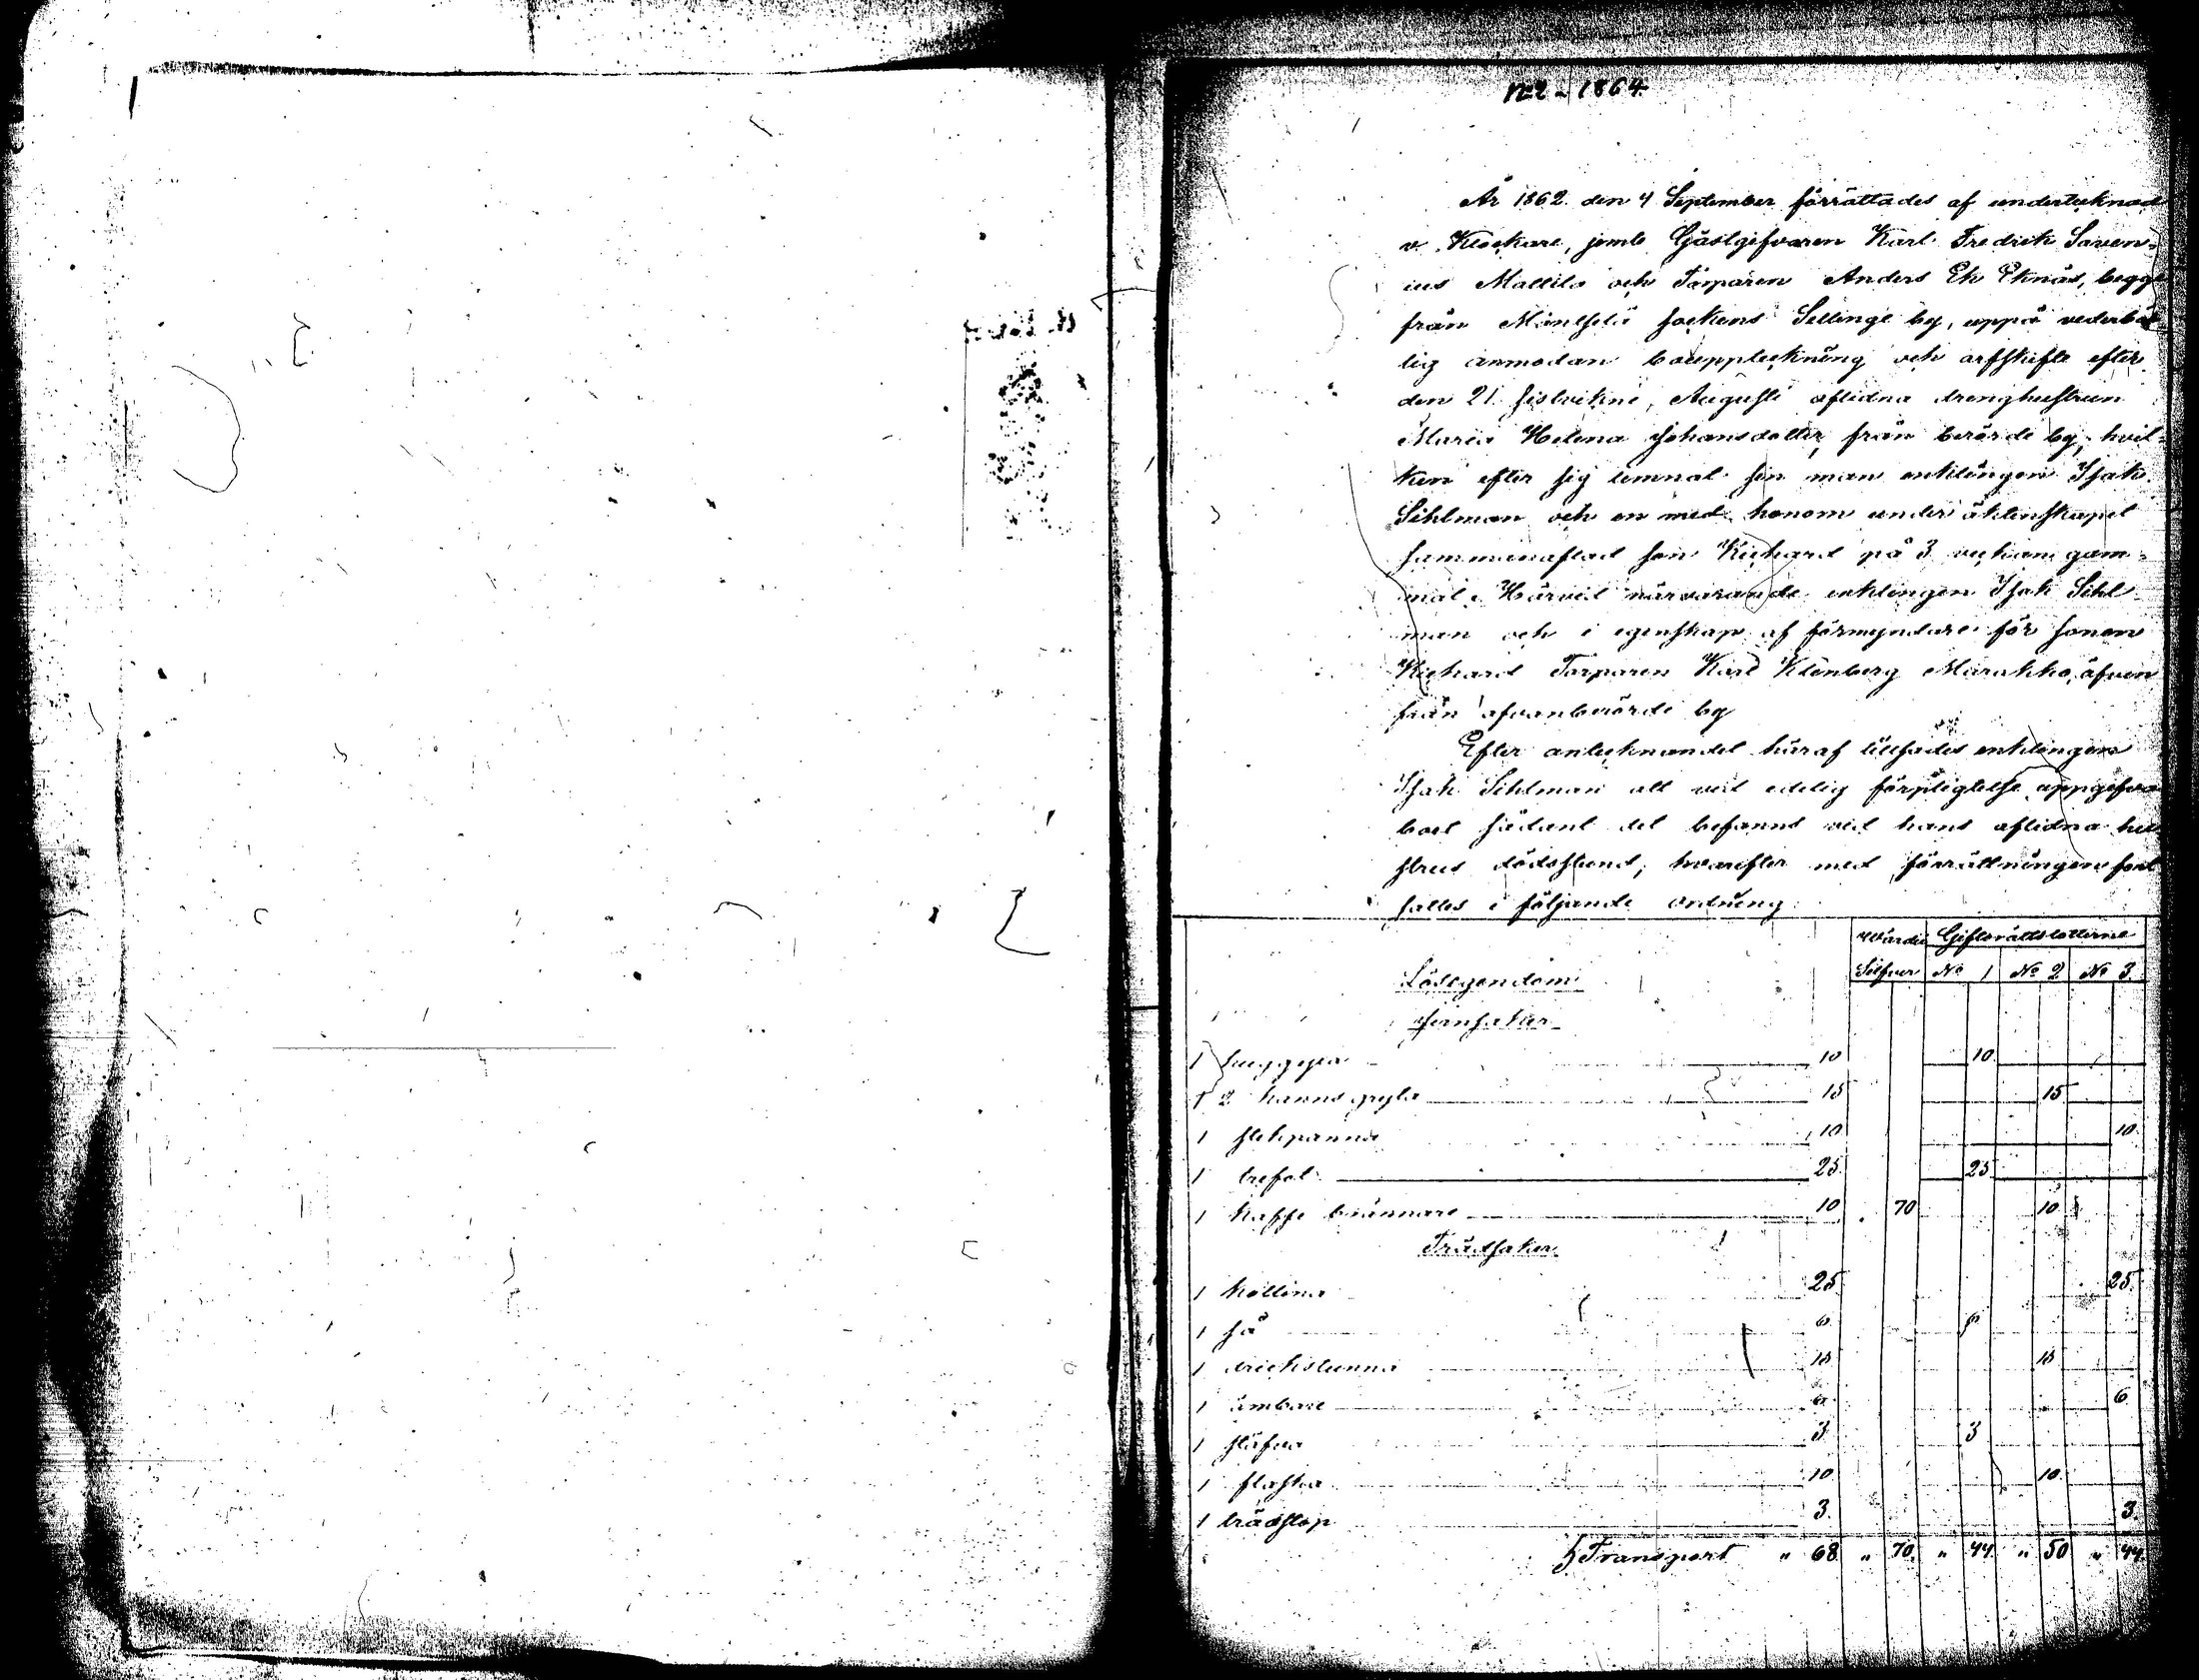 № 2 - 1864
År 1862 den 4 September förrättades af undertecknad
v. Klockare, jemte Gästgifvaren Karl Fredrik Saven-
ius Mallila och Torparen Anders Ek Eknäs, begge
från Mäntsälä sockens Sellinge by, uppå vederbör-
lig anmodan bouppteckning och arfskifte efter
den 21 sistvikne Augusti aflidna drenghustrun
Maria Helena Johansdotter från berörde by, hvil-
ken efter sig lemnat sin man enklingen Isak
Sihlman och en med honom under äktenskapet
sammanaflad son Richard på 3 veckans gam-
mal. Härvid närvarande enklingen Isak Sihl-
man och i egenskap af förmyndare för sonen
Richard Torparen Karl Klenberg Marakko, äfven
från ofvanberörde by
Efter antecknandet häraf tillsades enklingen
Isak Sihlman att vid edelig förpligtelse uppgifva
boet sådant det befanns vid hans aflidna hu-
strus dödsstund, hvarefter med förrättningen fort
sattes i följande ordning:
Värdie Giftorättslotterne
Silfver № 1 № 2 № 3.
Lösegendom
Jernsaker
1 huggyxa 10 10
1 2 kanns gryta 15 15
1 stekpanna 10 10
1 trefot 25 25
1 kaffe brännare 10 70 10
Trädsaker
1 kollina 25 25
1 så 6 6
1 drickstunna 15 15
1 ämbare 6 6
1 stäfva 3 3
1 flaska 10 10
1 trädstop 3 3
Transport " 68 " 70 " 44 " 50 " 44